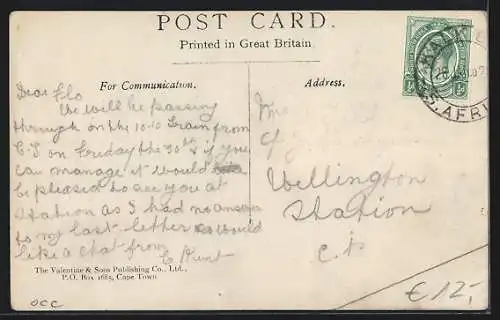 POST CARD.
Printed in Great Britain.
For Communication.
Address.
Dear Flo
We will be passing
through on the 10-10 train from
C.T on Friday the 30th & if you
can manage it would
be pleased to see you at
station as I had no answer
to my last letter so would
like a chat from
C Hunt
Wellington
Station
C.P.
The Valentine & Sons Publishing Co., Ltd.,
P.O. Box 1685, Cape Town
S. AFRI
occ
€ 12,-